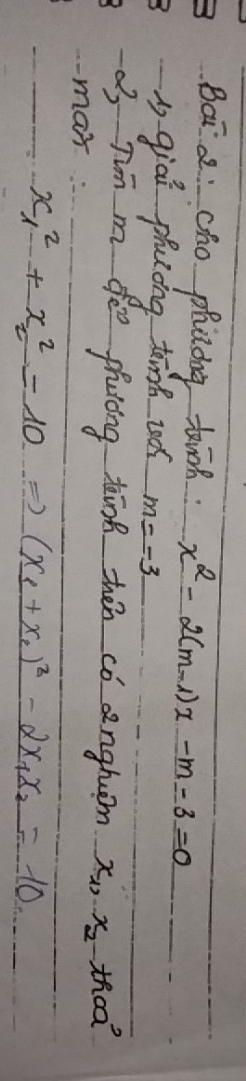 Bài 2: cho phương trình: x² - 2(m-1)x - m - 3 = 0
1, giải phương trình với m = -3
2, Tìm m để phương trình trên có 2 nghiệm x₁, x₂ thoả
mãn:
x₁² + x₂² = 10 => (x₁ + x₂)² - 2x₁x₂ = 10